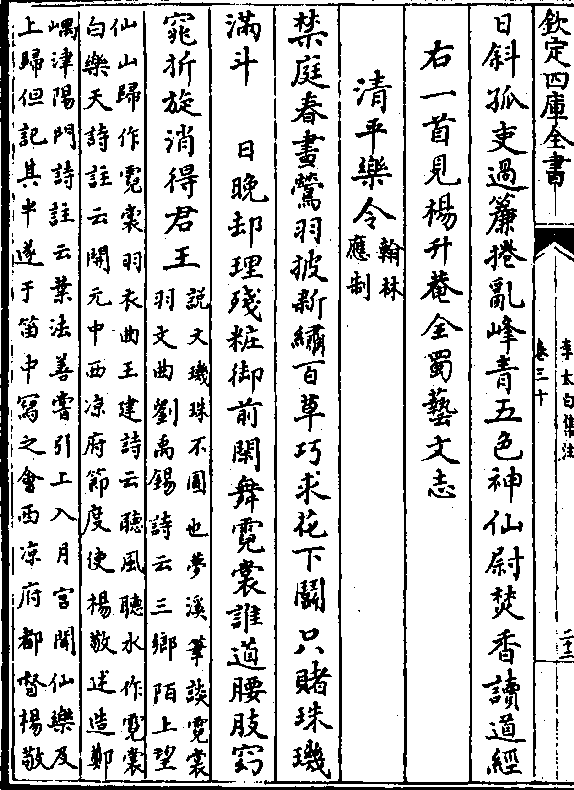 欽定四庫全書
李太白集注
卷三十
二十二
日斜孤吏過簾捲亂峰青五色神仙尉焚香讀道經
右一首見楊升菴全蜀藝文志
清平樂令翰林
應制
禁庭春晝鶯羽披新繡百草巧求花下鬭只賭珠璣
滿斗　日晚却理殘粧御前閑舞霓裳誰道腰肢窈
窕折旋消得君王說文璣珠不圓也夢溪筆談霓裳
羽文曲劉禹錫詩云三鄉陌上望
仙山歸作霓裳羽衣曲王建詩云聽風聽水作霓裳
白樂天詩註云開元中西凉府節度使楊敬述造鄭
嵎津陽門詩註云葉法善嘗引上入月宮聞仙樂及
上歸但記其半遂于笛中寫之會西凉府都督楊敬